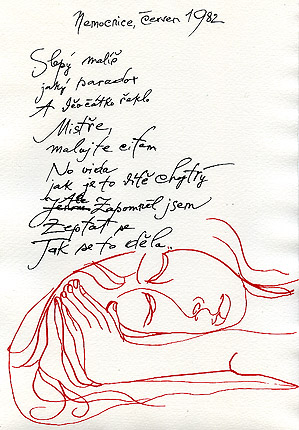 Nemocnice, červen 1982
Slepý malíř
jaký paradox
A děvčátko řeklo
Mistře,
malujte citem
No vida
jak je to dítě chytrý
Zapomněl jsem
Zeptat se
Jak se to dělá..